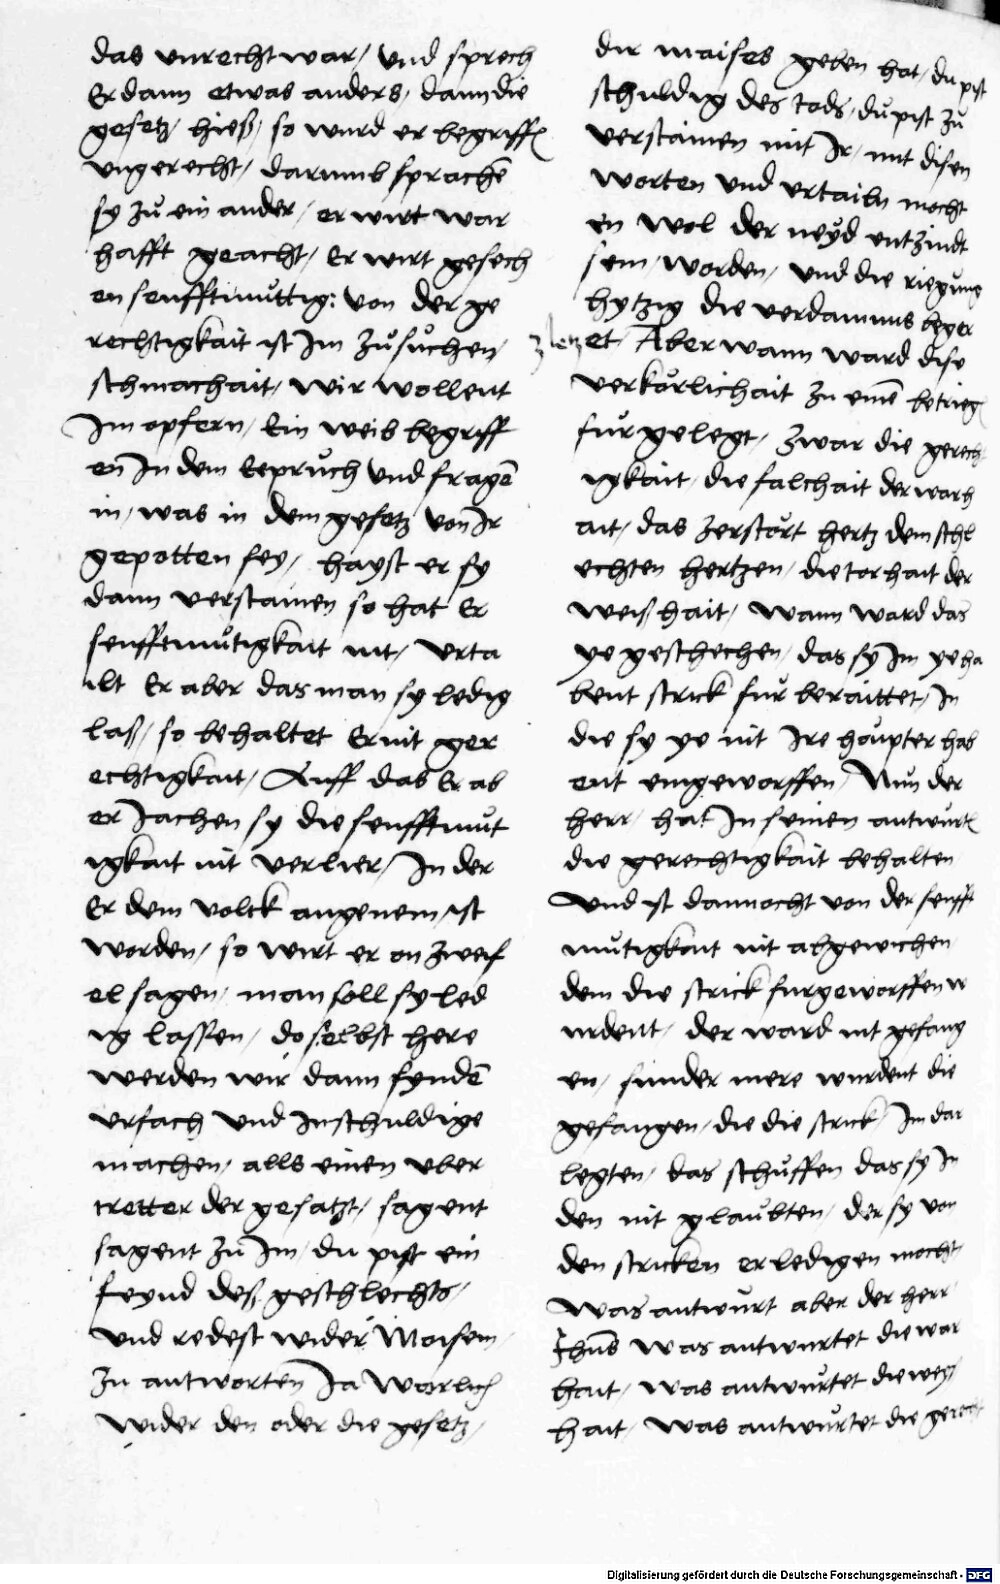 das vnrecht war / vnd sprech
Er dann etwas anders / dann die
gesetz / hieß / so wurd er begriffē
vngerecht / darumb sprachē
sy zů ein ander / er wirt war
hafft geacht / Er wirt gesech
en senfftmůttig : von der ge
rechtigkait ist Im zůsůchen /
schmachait / wir wollent
Im opfern / Ein weib begriff
en In dem Eepruch vnd fragē
in / was in dem gesetz von Ir
gepotten sey / hayst er sy
dann verstainen so hat Er
senfftmůtigkait nit / vrta
ilt Er aber das man sy ledig
laß / so behaltet Er nit ger
echtigkait / Auff das Er ab
er sy die senfftmůt
igkait nit verlier / In der
Er dem volck angenem / ist
worden / so wirt er on zweif
el sagen / man soll sy led
ig lassen / doselbst here
werden wir dann fyndē
vrsach vnd In schuldige
machen / alls einen vber
tretter der gesatzt / sagent
sagent zů Im / du pist ein
feynd deß geschlechts /
vnd redest wider Moisem
zu antworten Ja warlich
wider den oder die gesetz /
dir maises geben hat / du pist
schuldig des tods / du pist zů
verstainen mit Ir / mit disen
worten vnd vrtailn mocht
en wol der neyd entzindt
sein / worden / vnd die riegung
hytzig die verdamnus beger
et / Aber wann ward dise
verkörlichait zu einē betrieg
fůrgelegt / zwar die gerech
igkait / die falchait der warh
ait / das zerstört hertz dem schl
echten hertzen / die torhait der
weißhait / wann ward das
ye geschechen / das sy Im ye ha
bent strick fůr beraittet / In
die sy ye nit Ire houpter hab
ent eingeworffen / Nun der
herr / hat In seinen antwurtē
die gerechtigkait behalten
vnd ist dannocht von der senfft
můtigkait nit abgewichen
dem die strick furgeworffen w
urdent / der ward nit gefang
en / sunder mere wurdent die
gefangen / die die strick / Im dar
legten / das schůffen das sy In
den nit glaubten / der sy von
den stricken erledigen mocht
Was antwůrt aber der herr
Jhūs was antwurtet die war
hait / was antwůrtet die weyß
hait / was antwůrtet die gerecht
Digitalisierung gefördert durch die Deutsche Forschungsgemeinschaft - DFG